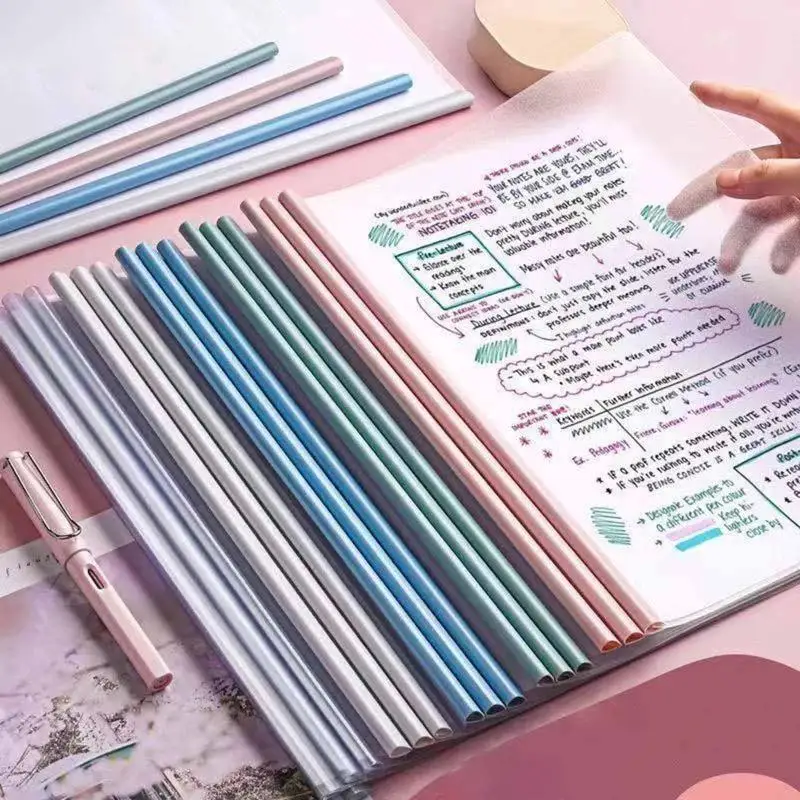 YOUR NOTES ARE YOURS, THEY'LL
BE BY YOUR SIDE @ EXAM TIME...
SO MAKE 'EM GOOD GREAT!
THE TITLE GOES AT THE TOP
OF THE NOTE
NOTETAKING 101
Don't worry about making your notes
pretty DURING lecture, you'll miss
valuable information!
Pre-Lecture
→ Glance over the
readings
→ Know the main
concepts
Messy notes are beautiful too!
During Lecture (Use a simple font for headers)
DEFINITIONS: don't just copy the slide, listen for the
professors deeper meaning
USE UPPERCASE
underlines,
or CURSIVE
This is what a main point looks like
↳ A subpoint
• Maybe there's even more points needed
STAR THE
IMPORTANT
Keywords
Further information
Use the Cornell Method (if you prefer)
Ex. Pedagogy
"learning about learning"
* IF a prof repeats something, WRITE IT DOWN
* IF you're running to write it all, you're
BEING CONCISE IS A GREAT SKILL!
→ Designate Examples to
a different pen colour
→ Keep hi-
lighters
close by